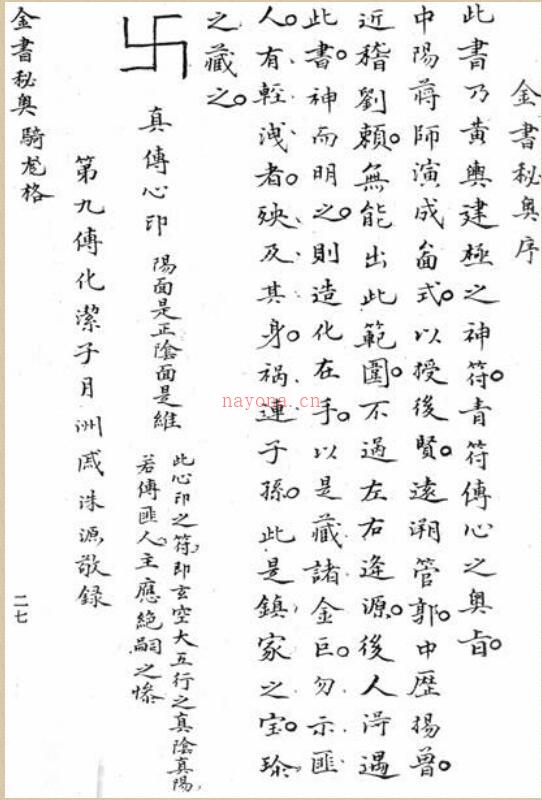 金書秘奥序
此書乃黄輿建極之神符。青符傳心之奥旨。
中陽蔣師演成畣式。以授後賢。遠溯管郭。中歷揚曾。
近稽劉賴。無能出此範圍。不過左右逢源。後人淂遇
此書。神而明之。則造化在手。以是藏諸金匱。勿示匪
人。有輕洩者。殃及其身。祸連子孫。此是鎮家之宝。珎
之藏之。
卐
真傳心印 陽面是正陰面是維
此心印之符,即玄空大五行之真陰真陽,
若傳匪人,主應絶嗣之惨
第九傳化潔子月洲戚洙源敬録
金書秘奥騎尨格
二七
nayona.cn